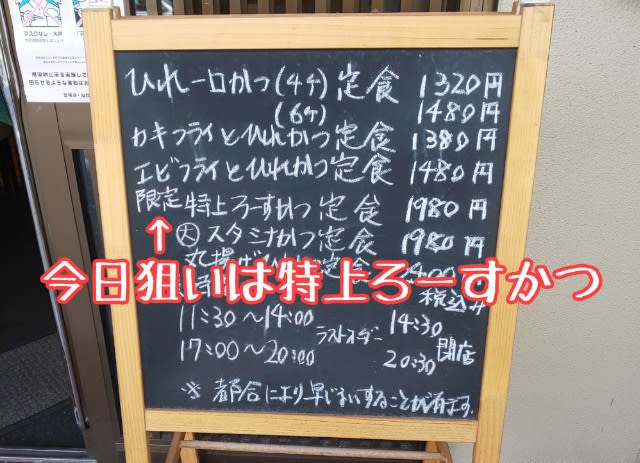 マスクなし・大声
ひれ一口かつ(4ケ)定食 1320円
(6ケ) 1480円
カキフライとひれかつ定食 1380円
エビフライとひれかつ定食 1480円
限定 特上ろーすかつ定食 1980円
↑ 大 スタミナかつ定食 1980円
今日狙いは特上ろーすかつ
税込み
11:30～14:00 ラストオーダー 14:30 閉店
17:00～20:00 20:30
※都合により早じまいすることが有ります。